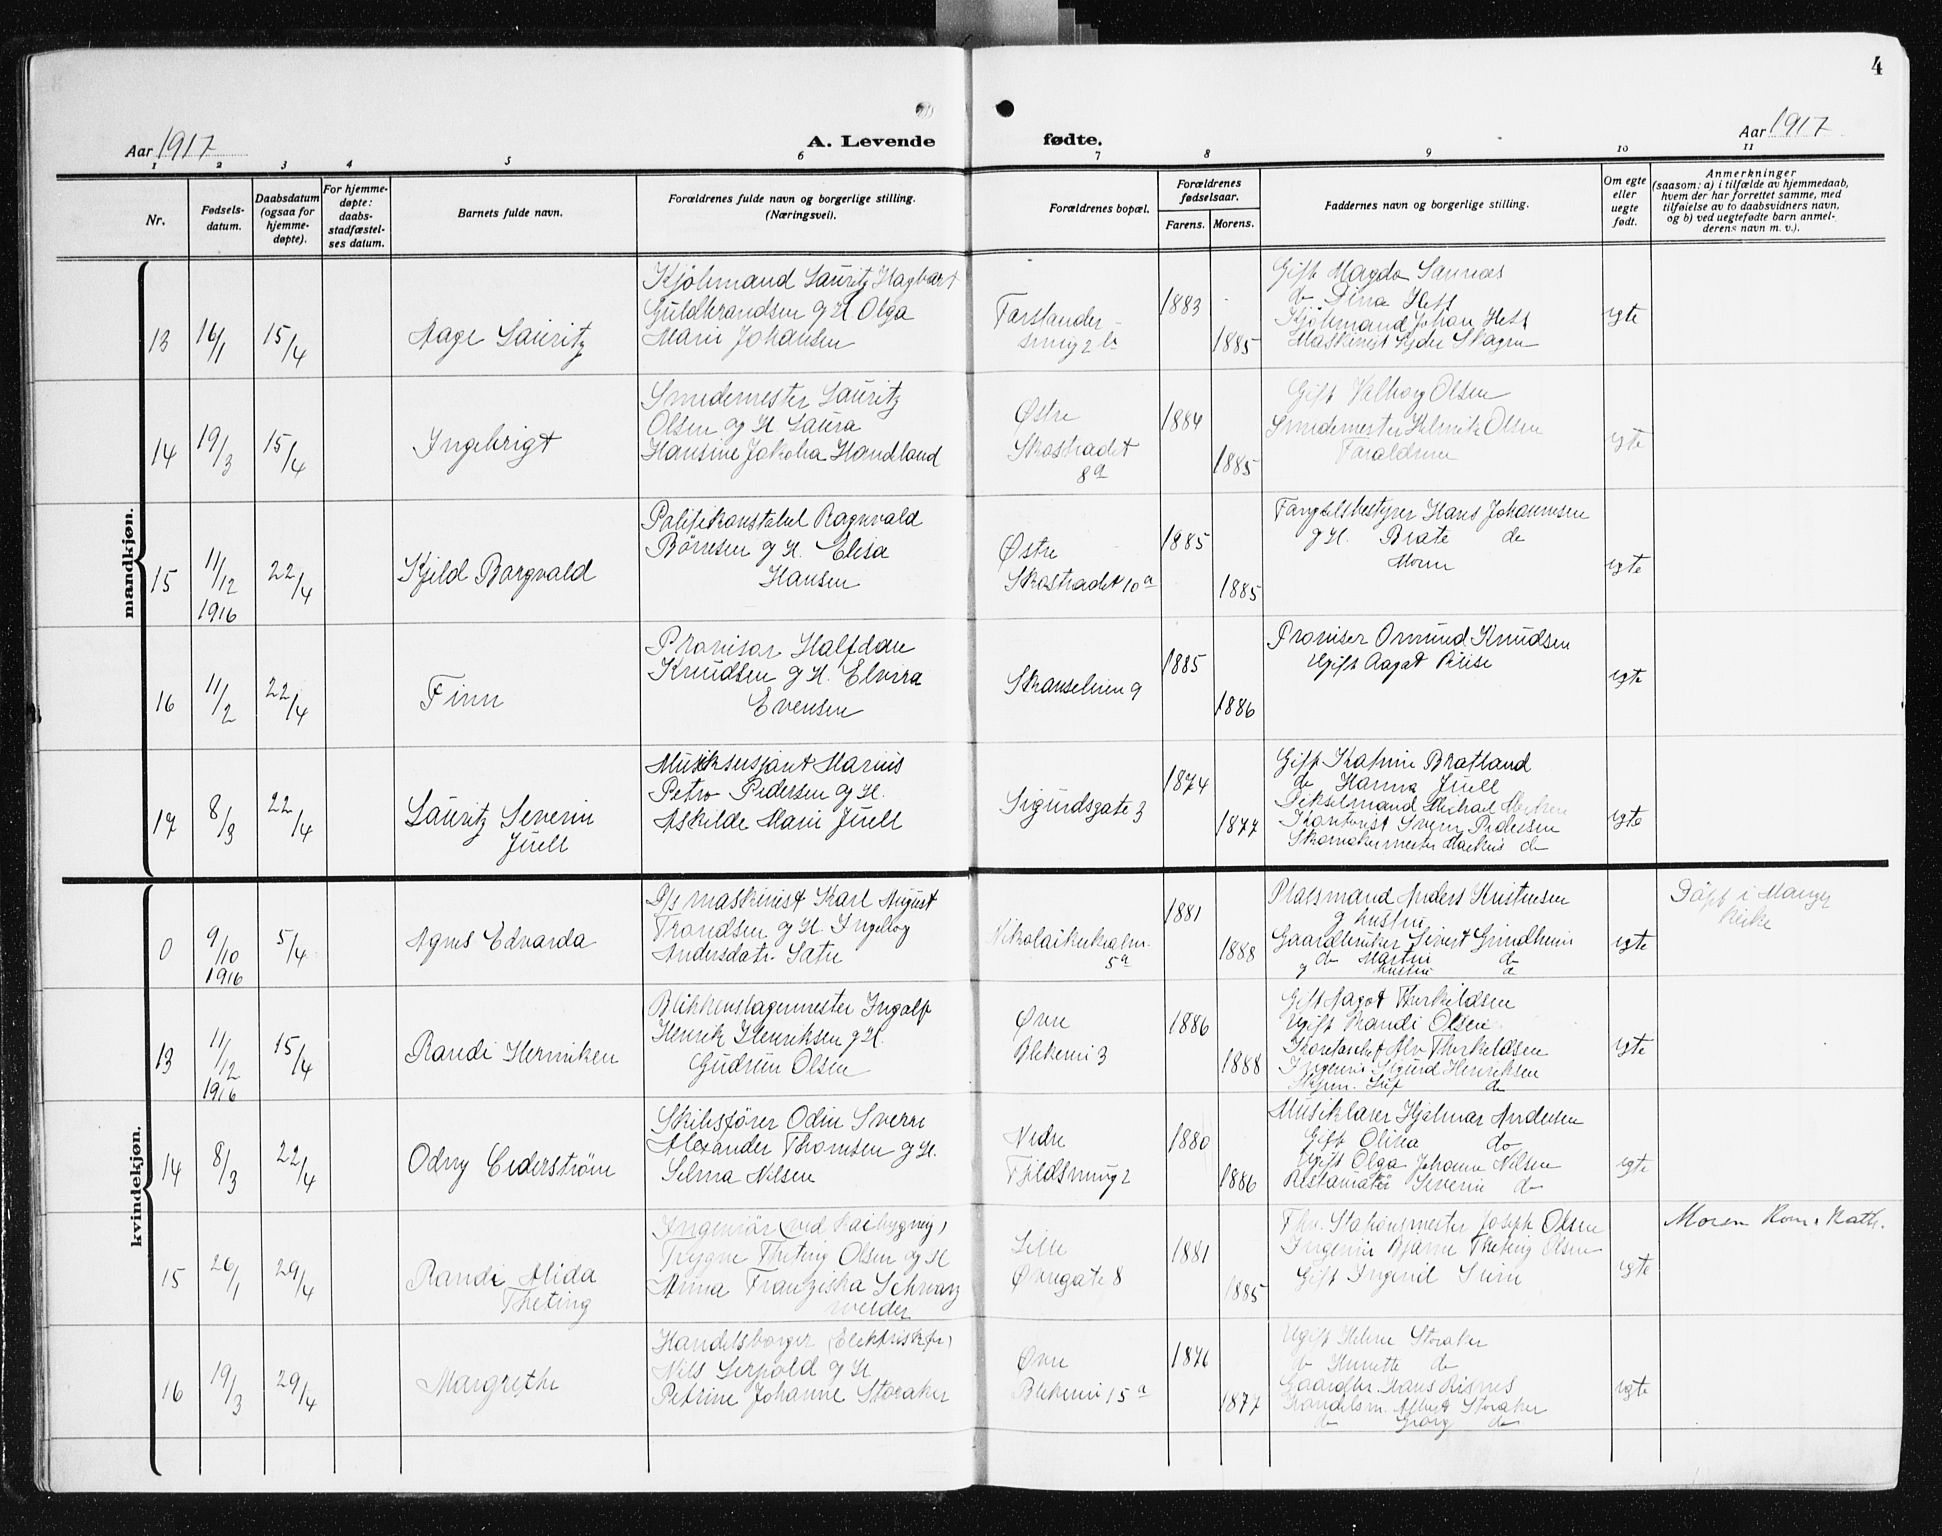 4
Aar 1917
A. Levende fødte.
Aar 1917
1 2 3 4 5 6 7 8 9 10 11
Nr.
Fødsels-
datum.
Daabsdatum
(ogsaa for
hjemme-
døpte).
For hjemme-
døpte:
daabs-
stadfæstel-
ses datum.
Barnets fulde navn.
Forældrenes fulde navn og borgerlige stilling.
(Næringsvei).
Forældrenes bopæl.
Forældrenes
fødselsaar.
Farens. Morens.
Faddernes navn og borgerlige stilling.
Om egte
eller
uegte
født.
Anmerkninger
(saasom: a) i tilfælde av hjemmedaab,
hvem der har forrettet samme, med
tilføielse av to daabsvidners navn,
og b) ved uegtefødte barn anmel-
derens navn m. v.).
mandkjøn.
13
16/1
15/4
Aage Lauritz
Kjølmand Lauritz Hagbart
Guldbrandsen og H. Olga
Marie Johansen
Forstander-
smug 2 b
1883
1885
Gift Magda
do Dina Heft
Kjølmand Johan Heft
Maskinist Peder Skagen
egte
14
19/3
15/4
Ingebrigt
Smedemester Lauritz
Olsen og H. Laura
Hansine Jakoba Handland
Østre
Skostrædet
8a
1884
1885
Gift Valborg Olsen
Smedemester Olsen
Forældrene
egte
15
11/12
1916
22/4
Kjeld Borgvald
Politikonstabel Ragnvald
Børresen og H. Elisa
Hansen
Østre
Skostrædet 10a
1885
1885
Fængselsbestyrer Hans Johannesen
og H. Brate do
Moren
egte
16
11/2
22/4
Finn
Provisor Halfdan
Knudsen og H. Elvira
Evensen
Skanselien 9
1885
1886
Provisor Ormund Knudsen
Ugift Aagot Riise
egte
17
8/3
22/4
Lauritz Severin
Juell
Musiksersjant Marius
Petro Pedersen og H.
Askilde Marie Juell
Sigurdsgate 3
1874
1877
Gift Katrine Bratland
do Hanna Juell
Michael
Kontorist Sverre Pedersen
Skomakermester Markus do
egte
kvindekjøn.
0
9/10
1916
5/4
Agnes Edvarda
D/s maskinist Karl August
Trondsen og H. Ingeborg
Andersdatr. Sætre
Nikolaikirkealm.
5a
1881
1888
Pladsmand Anders Kristensen
og hustru
Gaardbruker Sivert Grindheim
do Martin do
og hustru do
egte
Døpt i Manger
kirke
13
11/12
1916
15/4
Randi Henriksen
Blikkenslagermester Ingolf
Henrik Henriksen og H.
Gudrun Olsen
Øvre
Blekevei 3
1886
1888
Gift Aagot Therkildsen
Ugift Randi Olsen
Kontorchef Alv Therkildsen
Ingeniør Sigurd Henriksen
Leif do
egte
14
8/3
22/4
Odny Cederstrøm
Skibsfører Odin Sverre
Alexander Thomsen og H.
Selma Nilsen
Nedre
Fjeldsmug 2
1880
1886
Musiklærer Hjalmar Andersen
Gift Olivia do
Ugift Olga Johanne Nilsen
Restauratør Severin do
egte
15
26/1
29/4
Randi Alida
Theting
Ingeniør (ved kaibygning)
Trygve Theting Olsen og H
Anna Franziska Schwarz
welder
Lille
Øvregate 8
1881
1885
Fhv. Stationsmester Joseph Olsen
Ingeniør Bjarne Theting Olsen
Gift Ingerid
egte
Moren Rom. Kath.
16
19/3
29/4
Margrethe
Handelsborger (Elektriskfor)
Nils Serpold og H
Petrine Johanne Storaker
Øvre
Blekevei 15a
1876
1877
Ugift Helene Storaker
do do
Gaardbr. Hans Risnes
Handelsm. Albert Storaker
do Georg do
egte